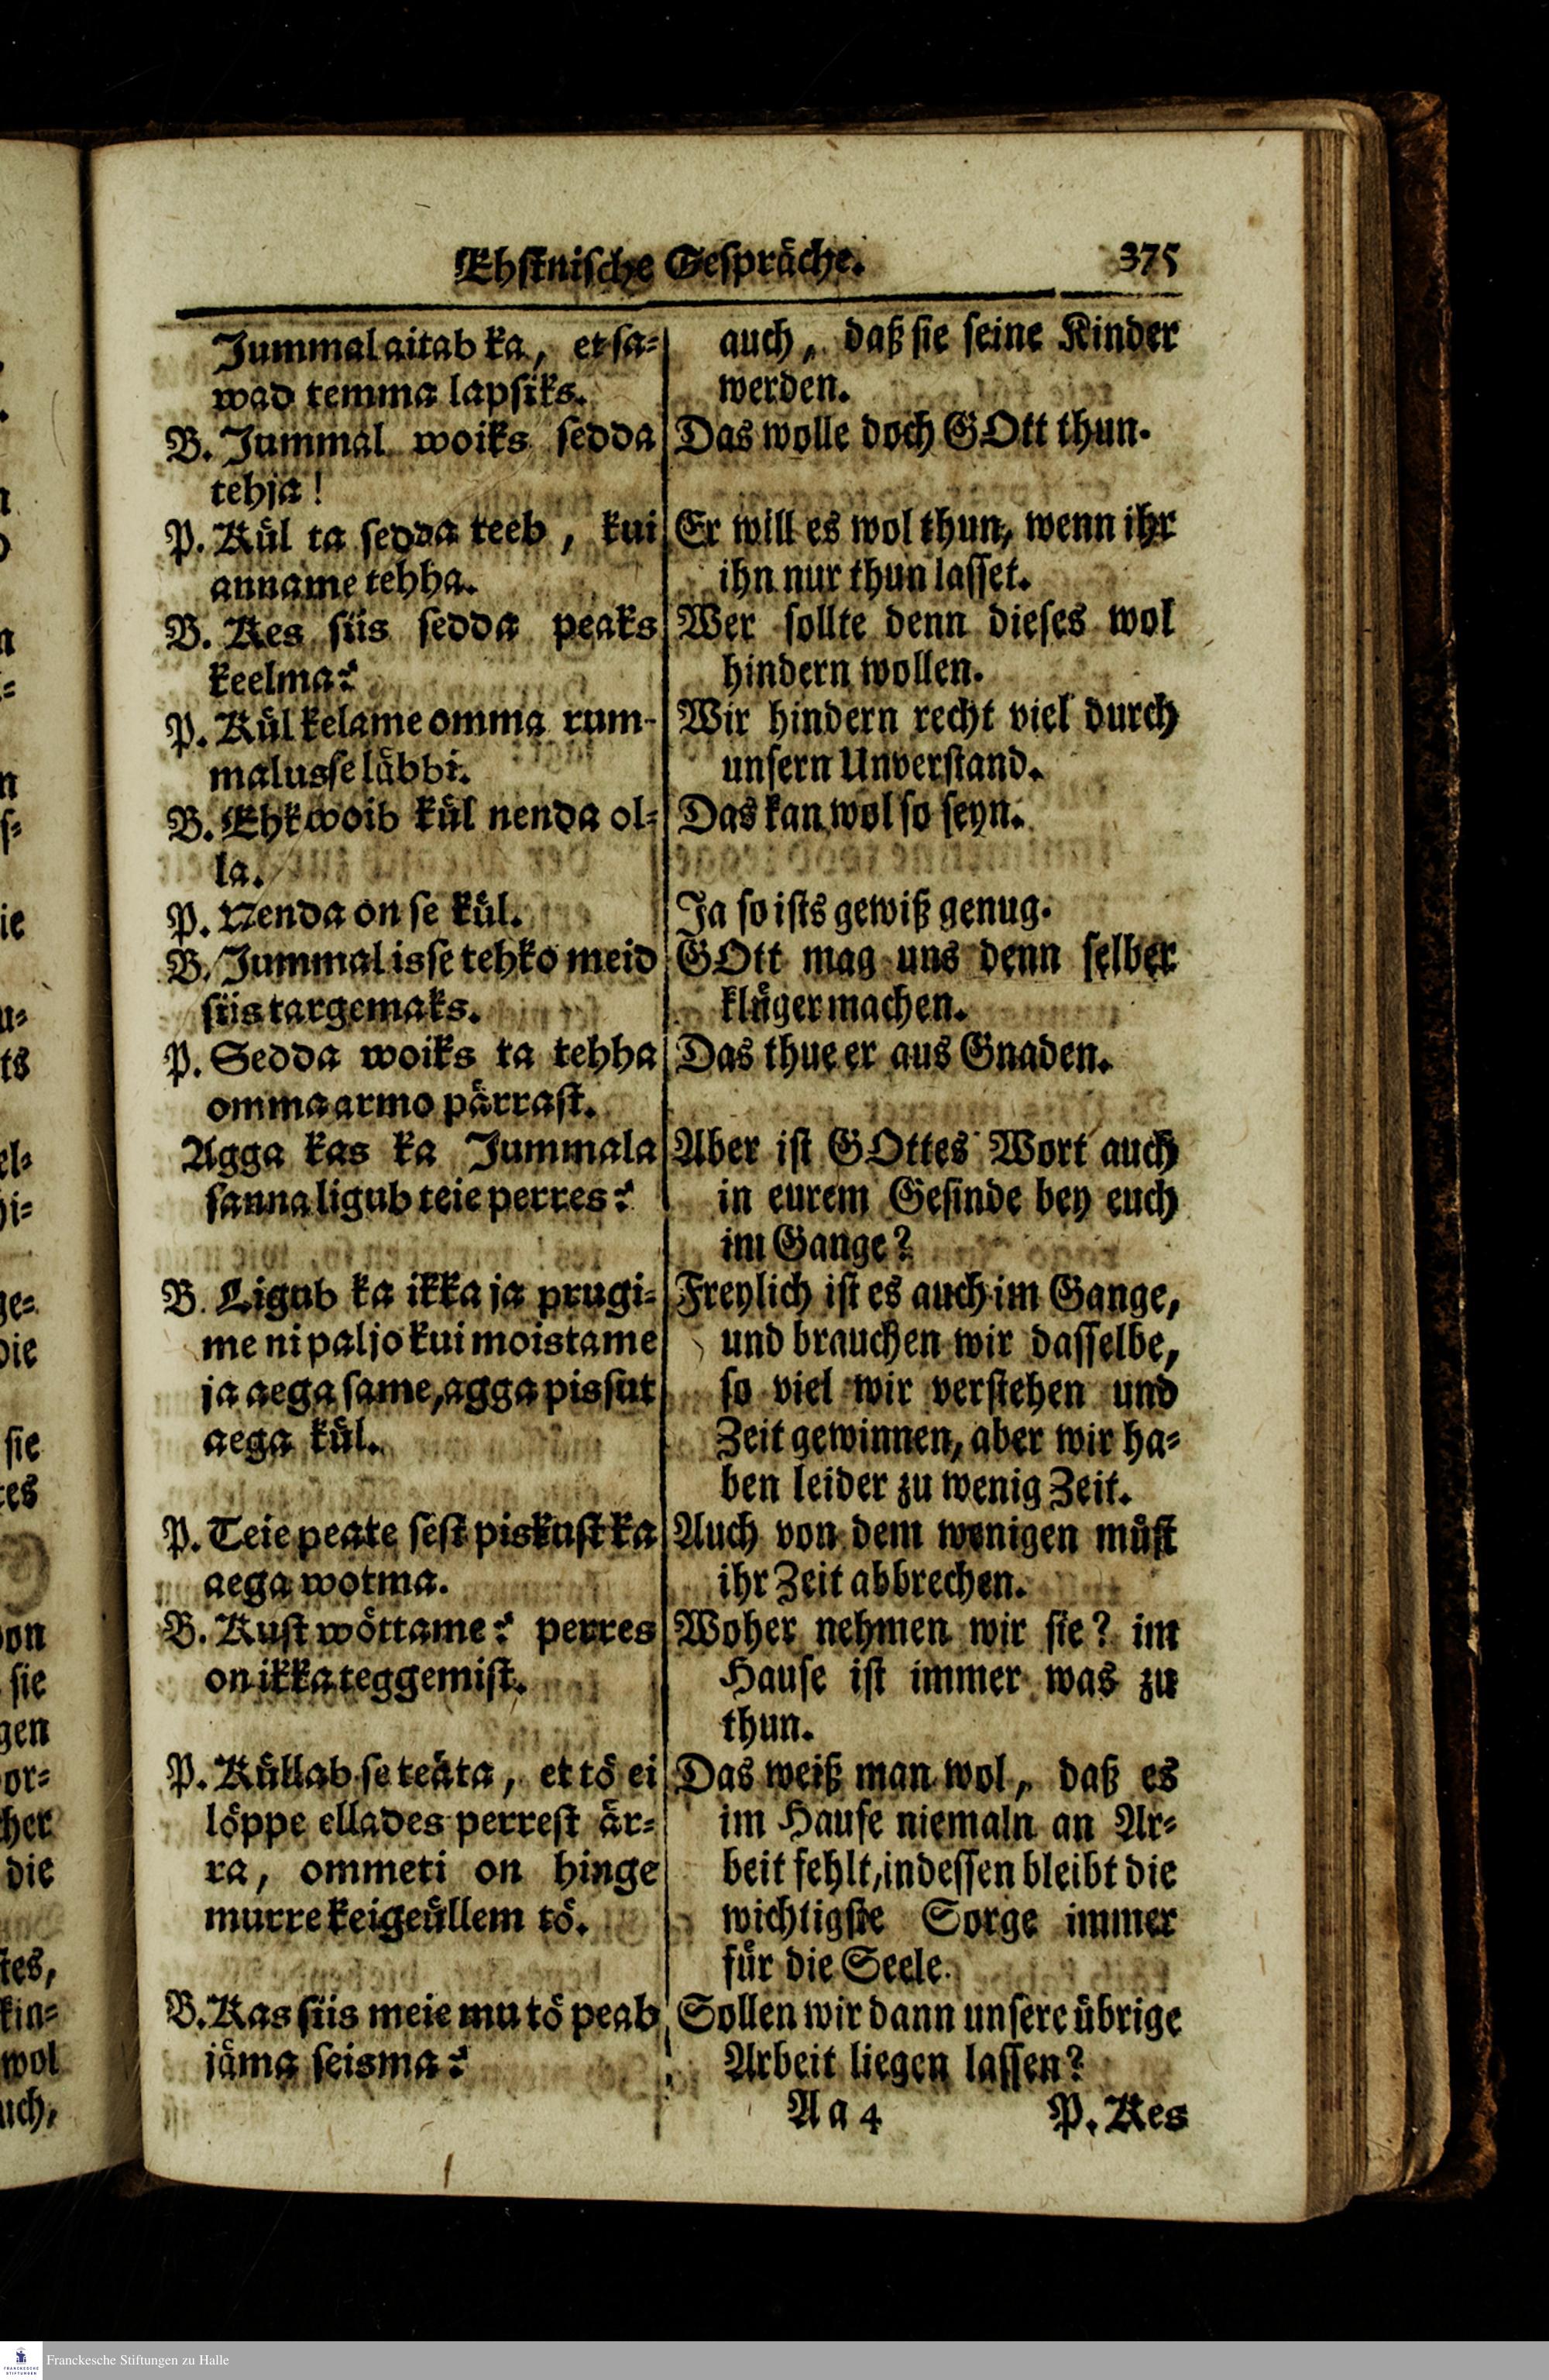 Ehstnische Gespräche. 375
Jummal aitab ka, et sa-
wad temma lapsiks.
B. Jummal woiks sedda
tehja!
P. Kül ta sedda teeb, kui
anname tehha.
B. Kes siis sedda peaks
keelma?
P. Kül kelame omma rum-
malusse läbbi.
B. Ehk woib kül nenda ol-
la.
P. Nenda on se kül.
B. Jummal isse tehko meid
siis targemaks.
P. Sedda woiks ta tehha
omma armo pärrast.
Agga kas ka Jummala
sanna ligub teie perres?
B. Ligub ka ikka ja prugi-
me ni paljo kui moistame
ja aega same, agga pissut
aega kül.
P. Teie peate sest piskust ka
aega wotma.
B. Kust wöttame? perres
on ikka teggemist.
P. Küllab se teäta, et tö ei
löppe ellades perrest är-
ra, ommeti on hinge
murre keigeüllem tö.
B. Kas siis meie mu tö peab
jäma seisma?
auch, daß sie seine Kinder
werden.
Das wolle doch GOtt thun.
Er will es wol thun, wenn ihr
ihn nur thun lasset.
Wer sollte denn dieses wol
hindern wollen.
Wir hindern recht viel durch
unsern Unverstand.
Das kan wol so seyn.
Ja so ists gewiß genug.
GOtt mag uns denn selber
klüger machen.
Das thue er aus Gnaden.
Aber ist GOttes Wort auch
in eurem Gesinde bey euch
im Gange?
Freylich ist es auch im Gange,
und brauchen wir dasselbe,
so viel wir verstehen und
Zeit gewinnen, aber wir ha-
ben leider zu wenig Zeit.
Auch von dem wenigen müst
ihr Zeit abbrechen.
Woher nehmen wir sie? im
Hause ist immer was zu
thun.
Das weiß man wol, daß es
im Hause niemaln an Ar-
beit fehlt, indessen bleibt die
wichtigste Sorge immer
für die Seele.
Sollen wir dann unsere übrige
Arbeit liegen lassen?
Aa 4 P. Kes
Franckesche Stiftungen zu Halle